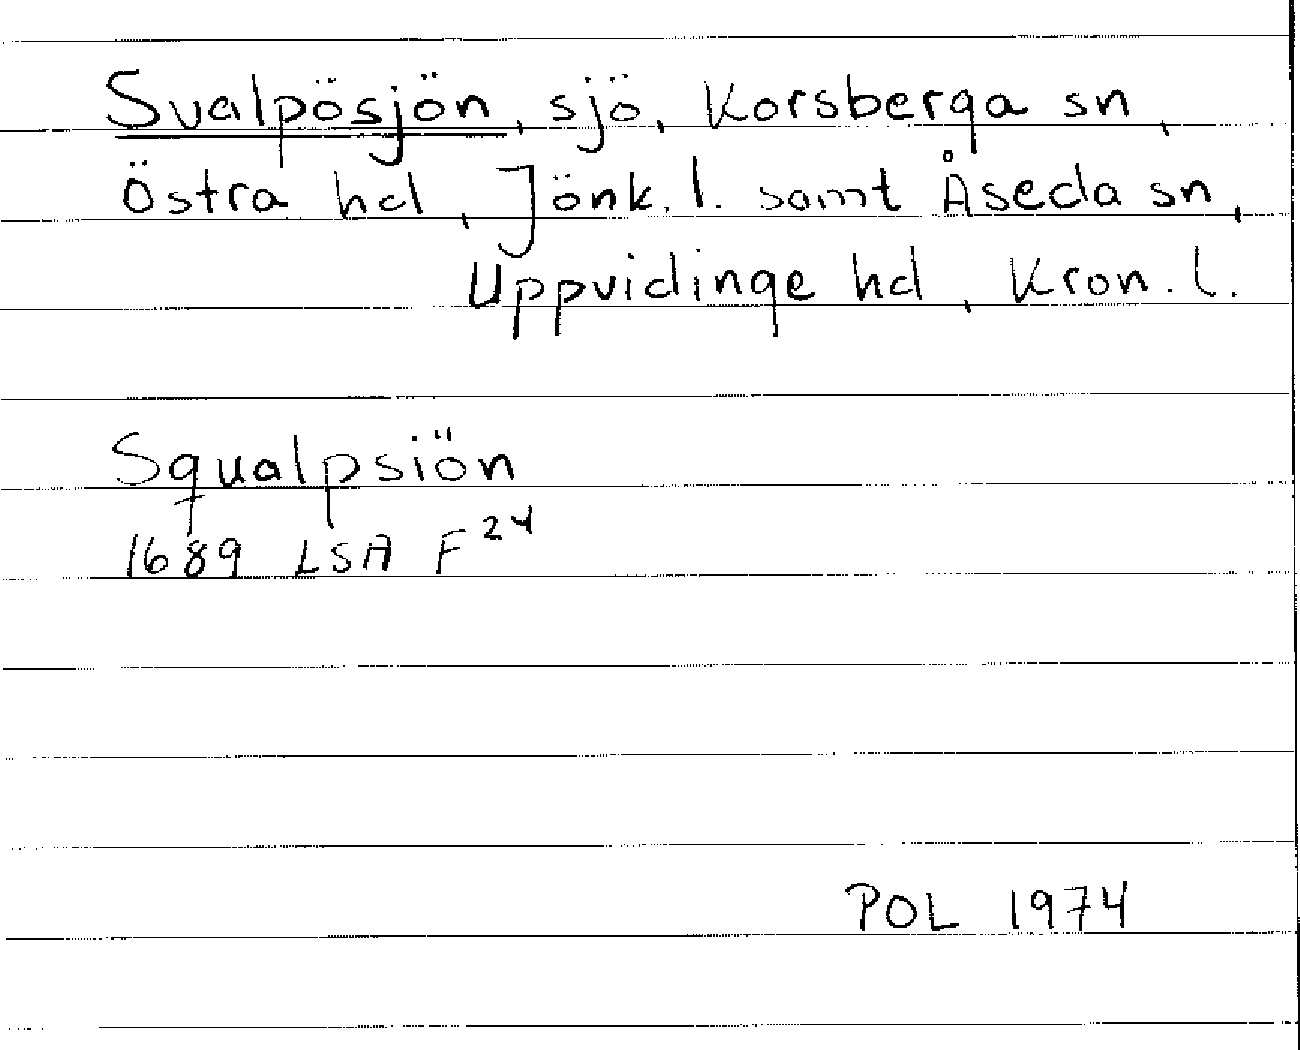 Svalpösjön, sjö, Korsberga sn,
Östra hd, Jönk. l. samt Åseda sn,
Uppvidinge hd, Kron. l.
Squalpsiön
1689 LSA F 24
POL 1974